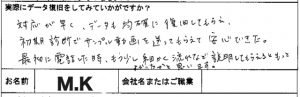 実際にデータ復旧をしてみていかがですか?
対応が早く、データも均確に復旧してもらえ、
初期診断でサンプル動画を送ってもらえて安心できた。
最初に電話した時、もう少し細かく流れなど説明してもらえるともって
よかったかなと思います。
お名前 M.K 会社名またはご職業